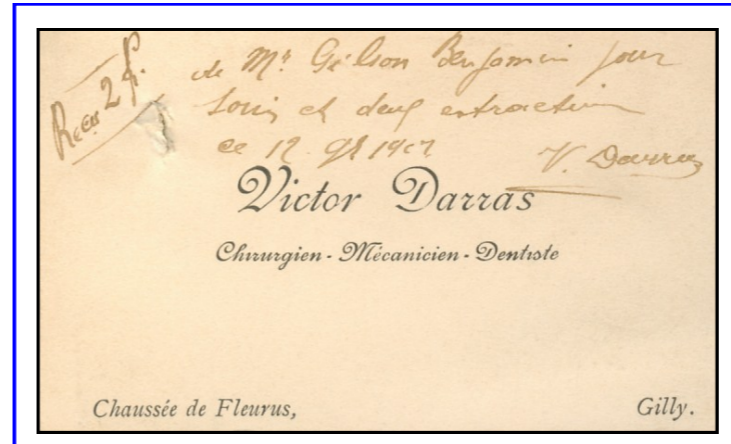 Reçu 2 f.
de Mr Gilson Benjamin pour
soin et deux extraction
ce 12 1907
V. Darras
Victor Darras
Chirurgien - Mécanicien - Dentiste
Chaussée de Fleurus,
Gilly.